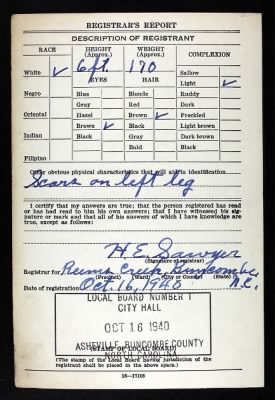 REGISTRAR'S REPORT
DESCRIPTION OF REGISTRANT
RACE HEIGHT (Approx.) WEIGHT (Approx.) COMPLEXION
6 ft. 170 Sallow
White ✓ EYES HAIR Light ✓
Negro Blue Blonde Ruddy
Gray Red Dark
Oriental Hazel Brown ✓ Freckled
Brown ✓ Black Light brown
Indian Black Gray Dark brown
Bald Black
Filipino
Other obvious physical characteristics that will aid in identification
Scars on left leg
I certify that my answers are true; that the person registered has read
or has had read to him his own answers; that I have witnessed his signature
or mark and that all of his answers of which I have knowledge
are true, except as follows:
H. E. Sawyer
(Signature of registrar)
Registrar for Reems Creek Buncombe, N.C.
(Precinct) (Ward) (City or County) (State)
Date of registration Oct. 16, 1940
LOCAL BOARD NUMBER 1
CITY HALL
OCT 16 1940
ASHEVILLE, BUNCOMBE COUNTY
NORTH CAROLINA
(STAMP OF LOCAL BOARD)
(The stamp of the Local Board having jurisdiction of the registrant
shall be placed in the above space.)
16-17105